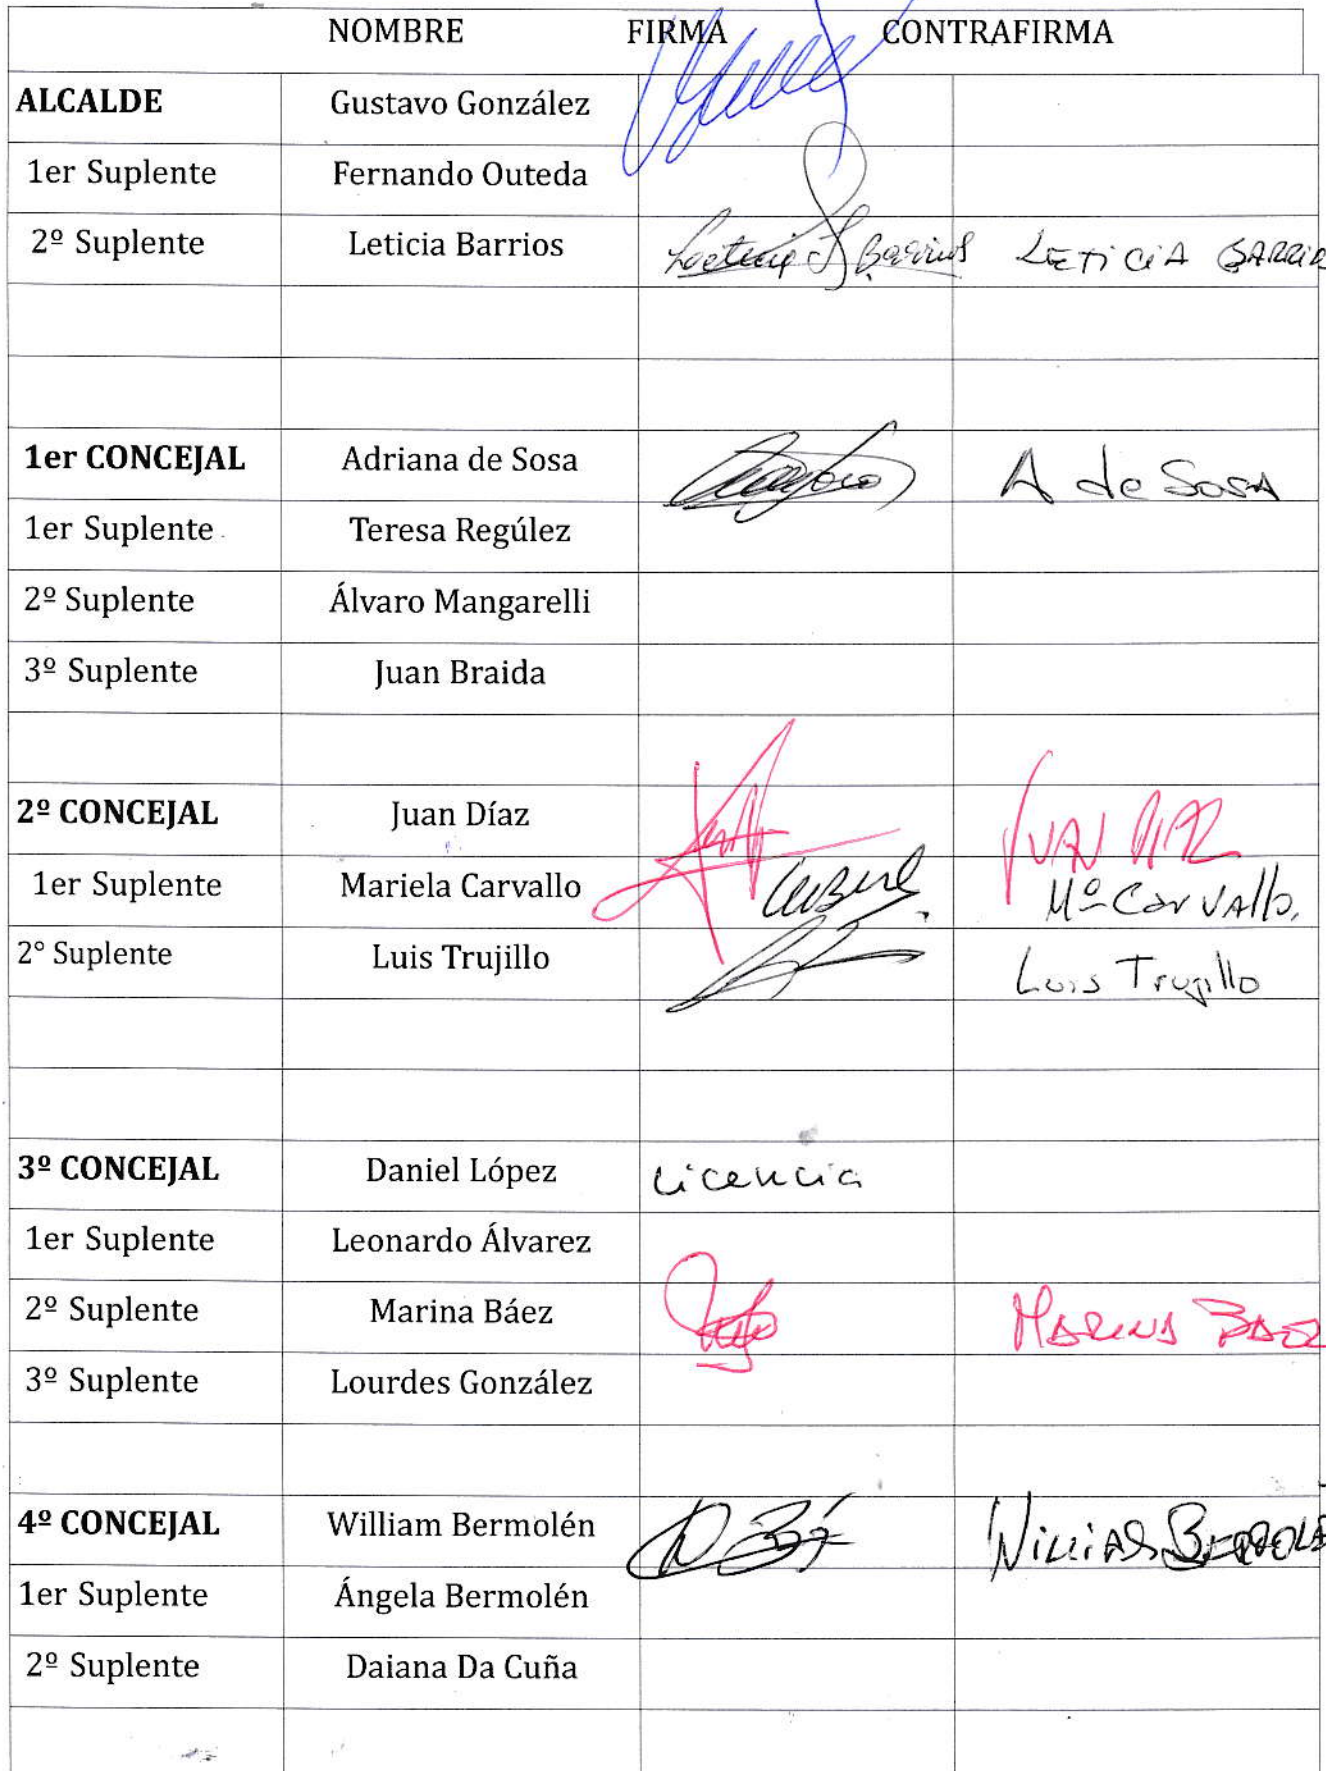 NOMBRE FIRMA CONTRAFIRMA
ALCALDE Gustavo González
1er Suplente Fernando Outeda
2º Suplente Leticia Barrios Barrios LETICIA BARRIO
1er CONCEJAL Adriana de Sosa A de Sosa
1er Suplente Teresa Regúlez
2º Suplente Álvaro Mangarelli
3º Suplente Juan Braida
2º CONCEJAL Juan Díaz JUAN DIAZ
1er Suplente Mariela Carvallo Mª Carvallo.
2° Suplente Luis Trujillo Luis Trujillo
3º CONCEJAL Daniel López Licencia
1er Suplente Leonardo Álvarez
2º Suplente Marina Báez MARINA BAEZ
3º Suplente Lourdes González
4º CONCEJAL William Bermolén
1er Suplente Ángela Bermolén
2º Suplente Daiana Da Cuña